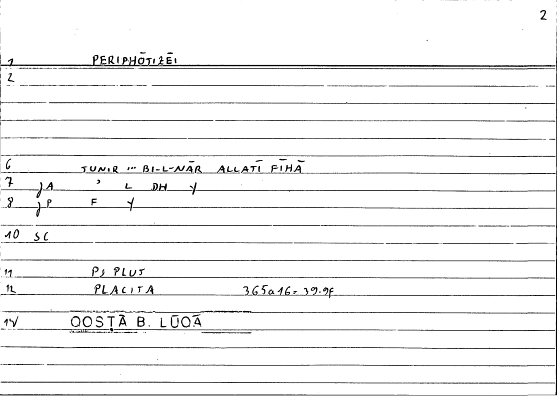 2
1 PERIPHŌTIZEI
2
6 TUNIR ... BI-L-NĀR ALLATĪ FĪHĀ
7 jA ʾ L DH Y
8 jP F Y
10 SC
11 Ps PLUT
12 PLACITA 365a16 = 39.9f
14 QOSṬĀ B. LŪQĀ